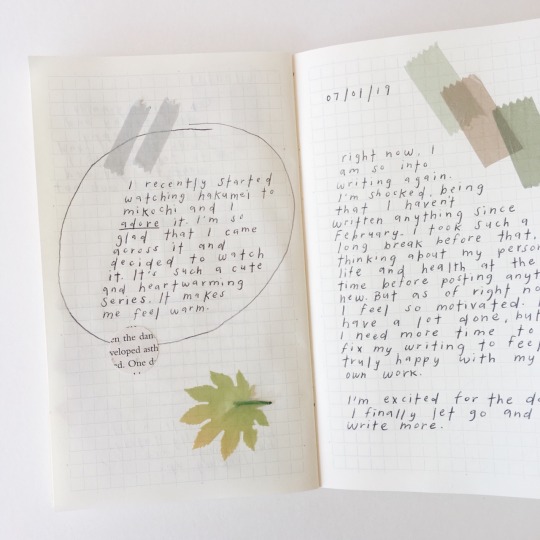 I recently started
watching hakumei to
mikochi and I
adore it. I'm so
glad that I came
across it and
decided to watch
it. It's such a cute
and heartwarming
series. It makes
me feel warm.
en the dan
veloped asth
ed. One d
07/01/19
right now, I
am so into
writing again.
I'm shocked, being
that I haven't
written anything since
February. I took such a
long break before that,
thinking about my person
life and health at the
time before posting anyt
new. But as of right no
I feel so motivated. I
have a lot done, but
I need more time to
fix my writing to feel
truly happy with my
own work.
I'm excited for the da
I finally let go and
write more.